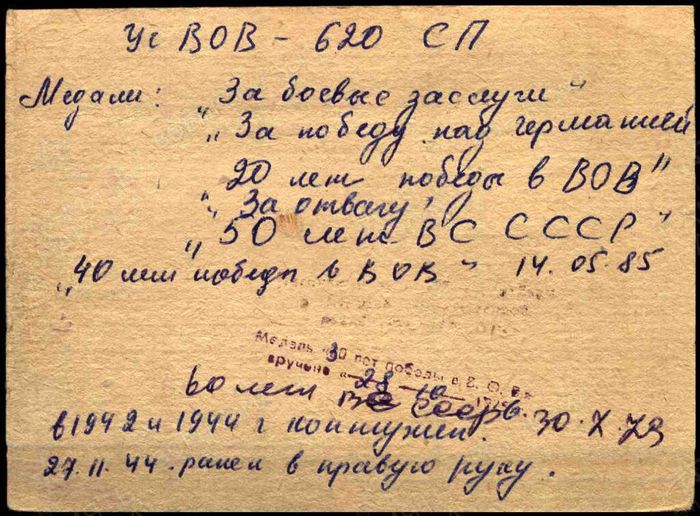 Уч ВОВ - 620 СП
Медали: "За боевые заслуги"
"За победу над германией
20 лет победы в ВОВ"
"За отвагу"
"50 лет ВС СССР"
"40 лет победы в ВОВ" 14.05.85
Медаль «30 лет победы в В. О. В»
вручена « 28 10
60 лет ВС СССР 30.X.79
в 1942 и 1944 г контужен.
27.11.44. ранен в правую руку.